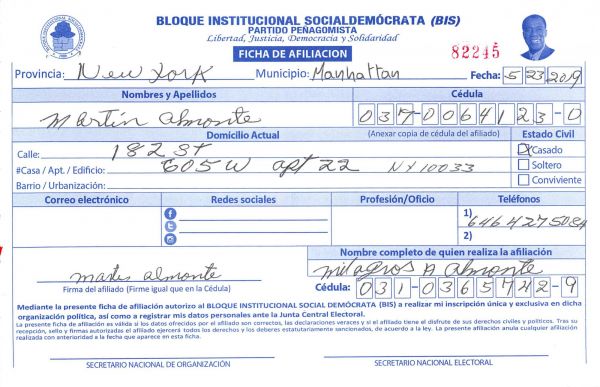 BLOQUE INSTITUCIONAL SOCIALDEMÓCRATA (BIS)
PARTIDO PEÑAGOMISTA
Libertad, Justicia, Democracia y Solidaridad
FICHA DE AFILIACION
82245
Provincia: New York Municipio: Manhattan Fecha: 5 23 2019
Nombres y Apellidos Cédula
Martin Almonte 037-0064123-0
Domicilio Actual (Anexar copia de cédula del afiliado) Estado Civil
Calle: 182 St Casado
#Casa / Apt. / Edificio: 605 W apt 22 NY 10033 Soltero
Barrio / Urbanización: Conviviente
Correo electrónico Redes sociales Profesión/Oficio Teléfonos
1) 646427508
2)
Nombre completo de quien realiza la afiliación
Milagros A Almonte
almonte
Firma del afiliado (Firme igual que en la Cédula) Cédula: 031-0365742-9
Mediante la presente ficha de afiliación autorizo al BLOQUE INSTITUCIONAL SOCIAL DEMÓCRATA (BIS) a realizar mi inscripción única y exclusiva en dicha
organización política, así como a registrar mis datos personales ante la Junta Central Electoral.
La presente ficha de afiliación es válida si los datos ofrecidos por el afiliado son correctos, las declaraciones veraces y si el afiliado tiene el disfrute de sus derechos civiles y políticos. Tras su
recepción, sello y firmas autorizadas el afiliado ejercerá todos los derechos y los deberes estatutariamente sancionados, de acuerdo a la ley. La presente afiliación anula cualquier afiliación
realizada con anterioridad a la fecha que aparece en esta ficha.
SECRETARIO NACIONAL DE ORGANIZACIÓN SECRETARIO NACIONAL ELECTORAL